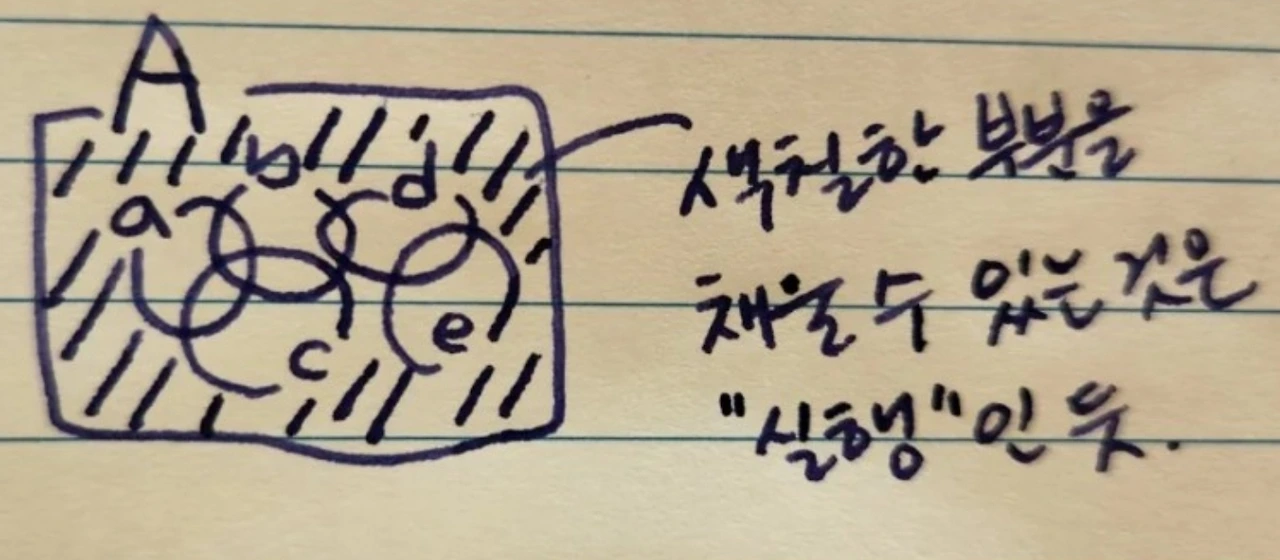 A
b
d
a
c
e
색칠한 부분을
채울 수 있는 것은
"실행"인 듯.